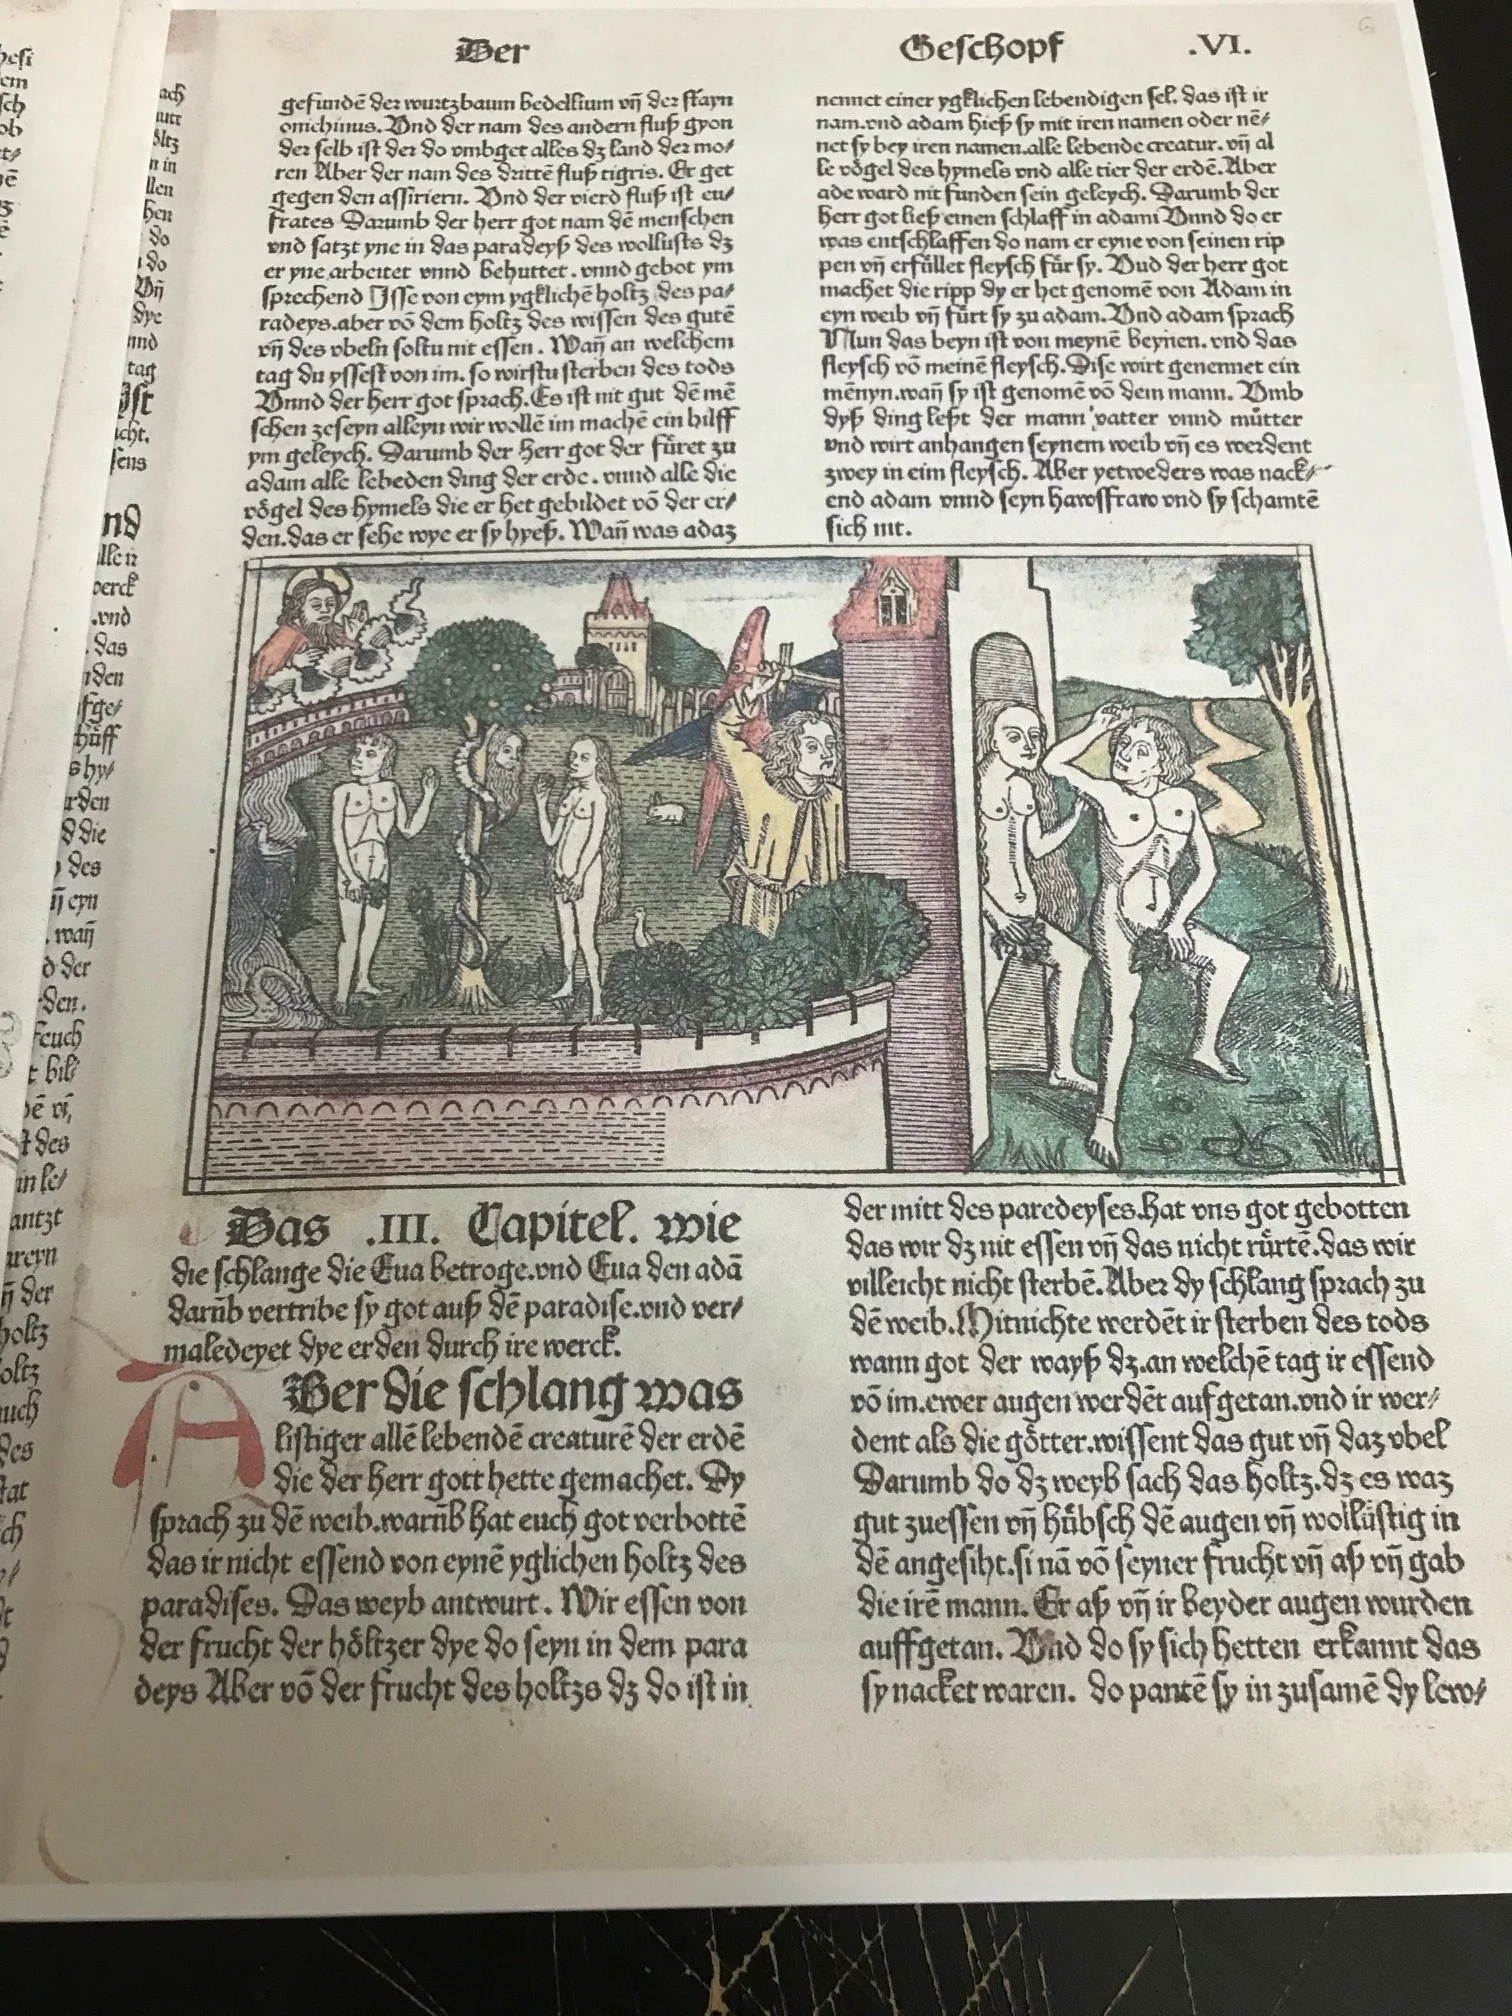 Der Geschopf .VI.
gefundē der wurtzbaum bedellium vñ der stayn
onichinus. Vnd der nam des andern fluß gyon
der selb ist der do vmbget alles dz land der mo/
ren Aber der nam des drittē fluß tigris. Er get
gegen den assiriern. Vnd der vierd fluß ist eu/
frates Darumb der herr got nam dē menschen
vnd satzt yne in das paradeyß des wollusts dz
er yne arbeitet vnnd behuttet. vnnd gebot ym
sprechend Isse von eym ygklichē holtz des pa/
radeys.aber vō dem holtz des wissen des gutē
vñ des vbeln soltu nit essen. Wañ an welchem
tag du yssest von im. so wirstu sterben des tods
Vnnd der herr got sprach.Es ist nit gut dē mē
schen zeseyn alleyn wir wollē im machē ein hilff
ym geleych. Darumb der herr got der fůret zu
adam alle lebeden ding der erde. vnnd alle die
vögel des hymels die er het gebildet vō der er/
den.das er sehe wye er sy hyeß. Wañ was adaz
nennet einer ygklichen lebendigen sel. das ist ir
nam.vnd adam hieß sy mit iren namen oder nē/
net sy bey iren namen.alle lebende creatur. vñ al
le vögel des hymels vnd alle tier der erdē. Aber
ade ward nit funden sein geleych. Darumb der
herr got ließ einen schlaff in adam Vnnd do er
was entschlaffen do nam er eyne von seinen rip
pen vñ erfüllet fleysch für sy. Vnd der herr got
machet die ripp dy er het genomē von Adam in
eyn weib vñ fürt sy zu adam. Vnd adam sprach
Nun das beyn ist von meynē beynen. vnd das
fleysch vō meinē fleysch. Dise wirt genennet ein
mēnyn.wañ sy ist genomē vō dem mann. Vmb
dyß ding leßt der mann vatter vnnd můtter
vnd wirt anhangen seynem weib vñ es werdent
zwey in eim fleysch. Aber yetweders was nack/
end adam vnnd seyn hawsfraw vnd sy schamtē
sich nit.
Das .III. Capitel. wie
die schlange die Eua betroge.vnd Eua den adā
darūb vertribe sy got auß dē paradise.vnd ver/
maledeyet dye erden durch ire werck.
A Ber die schlang was
listiger allē lebendē creaturē der erdē
die der herr gott hette gemachet. Dy
sprach zu dē weib.warūb hat euch got verbottē
das ir nicht essend von eynē yglichen holtz des
paradises. Das weyb antwurt. Wir essen von
der frucht der höltzer dye do seyn in dem para
deys Aber vō der frucht des holtzs dz do ist in
der mitt des paredeyses.hat vns got gebotten
das wir dz nit essen vñ das nicht rürtē.das wir
villeicht nicht sterbē.Aber dy schlang sprach zu
dē weib.Mitnichte werdēt ir sterben des tods
wann got der wayß dz.an welchē tag ir essend
vō im.ewer augen werdēt aufgetan.vnd ir wer/
dent als die götter.wissent das gut vñ daz vbel
Darumb do dz weyb sach das holtz.dz es waz
gut zuessen vñ hübsch dē augen vñ wollüstig in
dē angesiht.si nā vō seyner frucht vñ aß vñ gab
die irē mann. Er aß vñ ir beyder augen wurden
auffgetan. Vnd do sy sich hetten erkannt das
sy nacket waren. do pantē sy in zusamē dy lew/